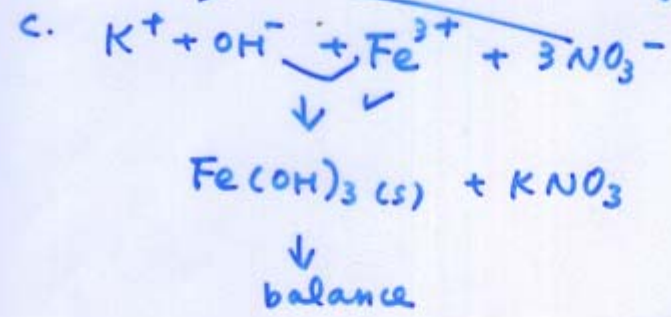 c. K⁺ + OH⁻ + Fe³⁺ + 3 NO₃⁻
↓ ✓
Fe(OH)₃ (s) + KNO₃
↓
balance